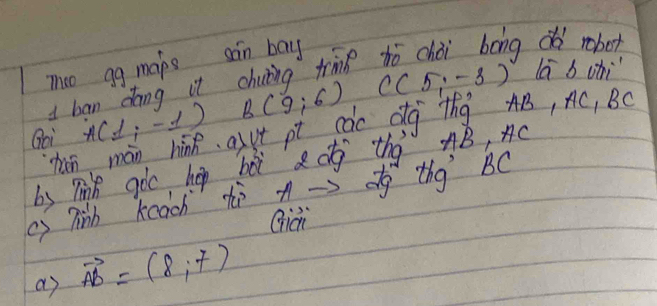 Theo gg maps sân bay
1 bạn đang vt chương trình trò chơi bóng đá robot
Gọi A(1; -1) B(9; 6) C(5; -3) là 3 vtrí
trên màn hình. a> vt pt các đg thg AB, AC, BC
b> Tính góc hợp bởi 2 đg thg AB, AC
c> Tính kcách từ A → đg thg BC
Giải
a> AB = (8; 7)